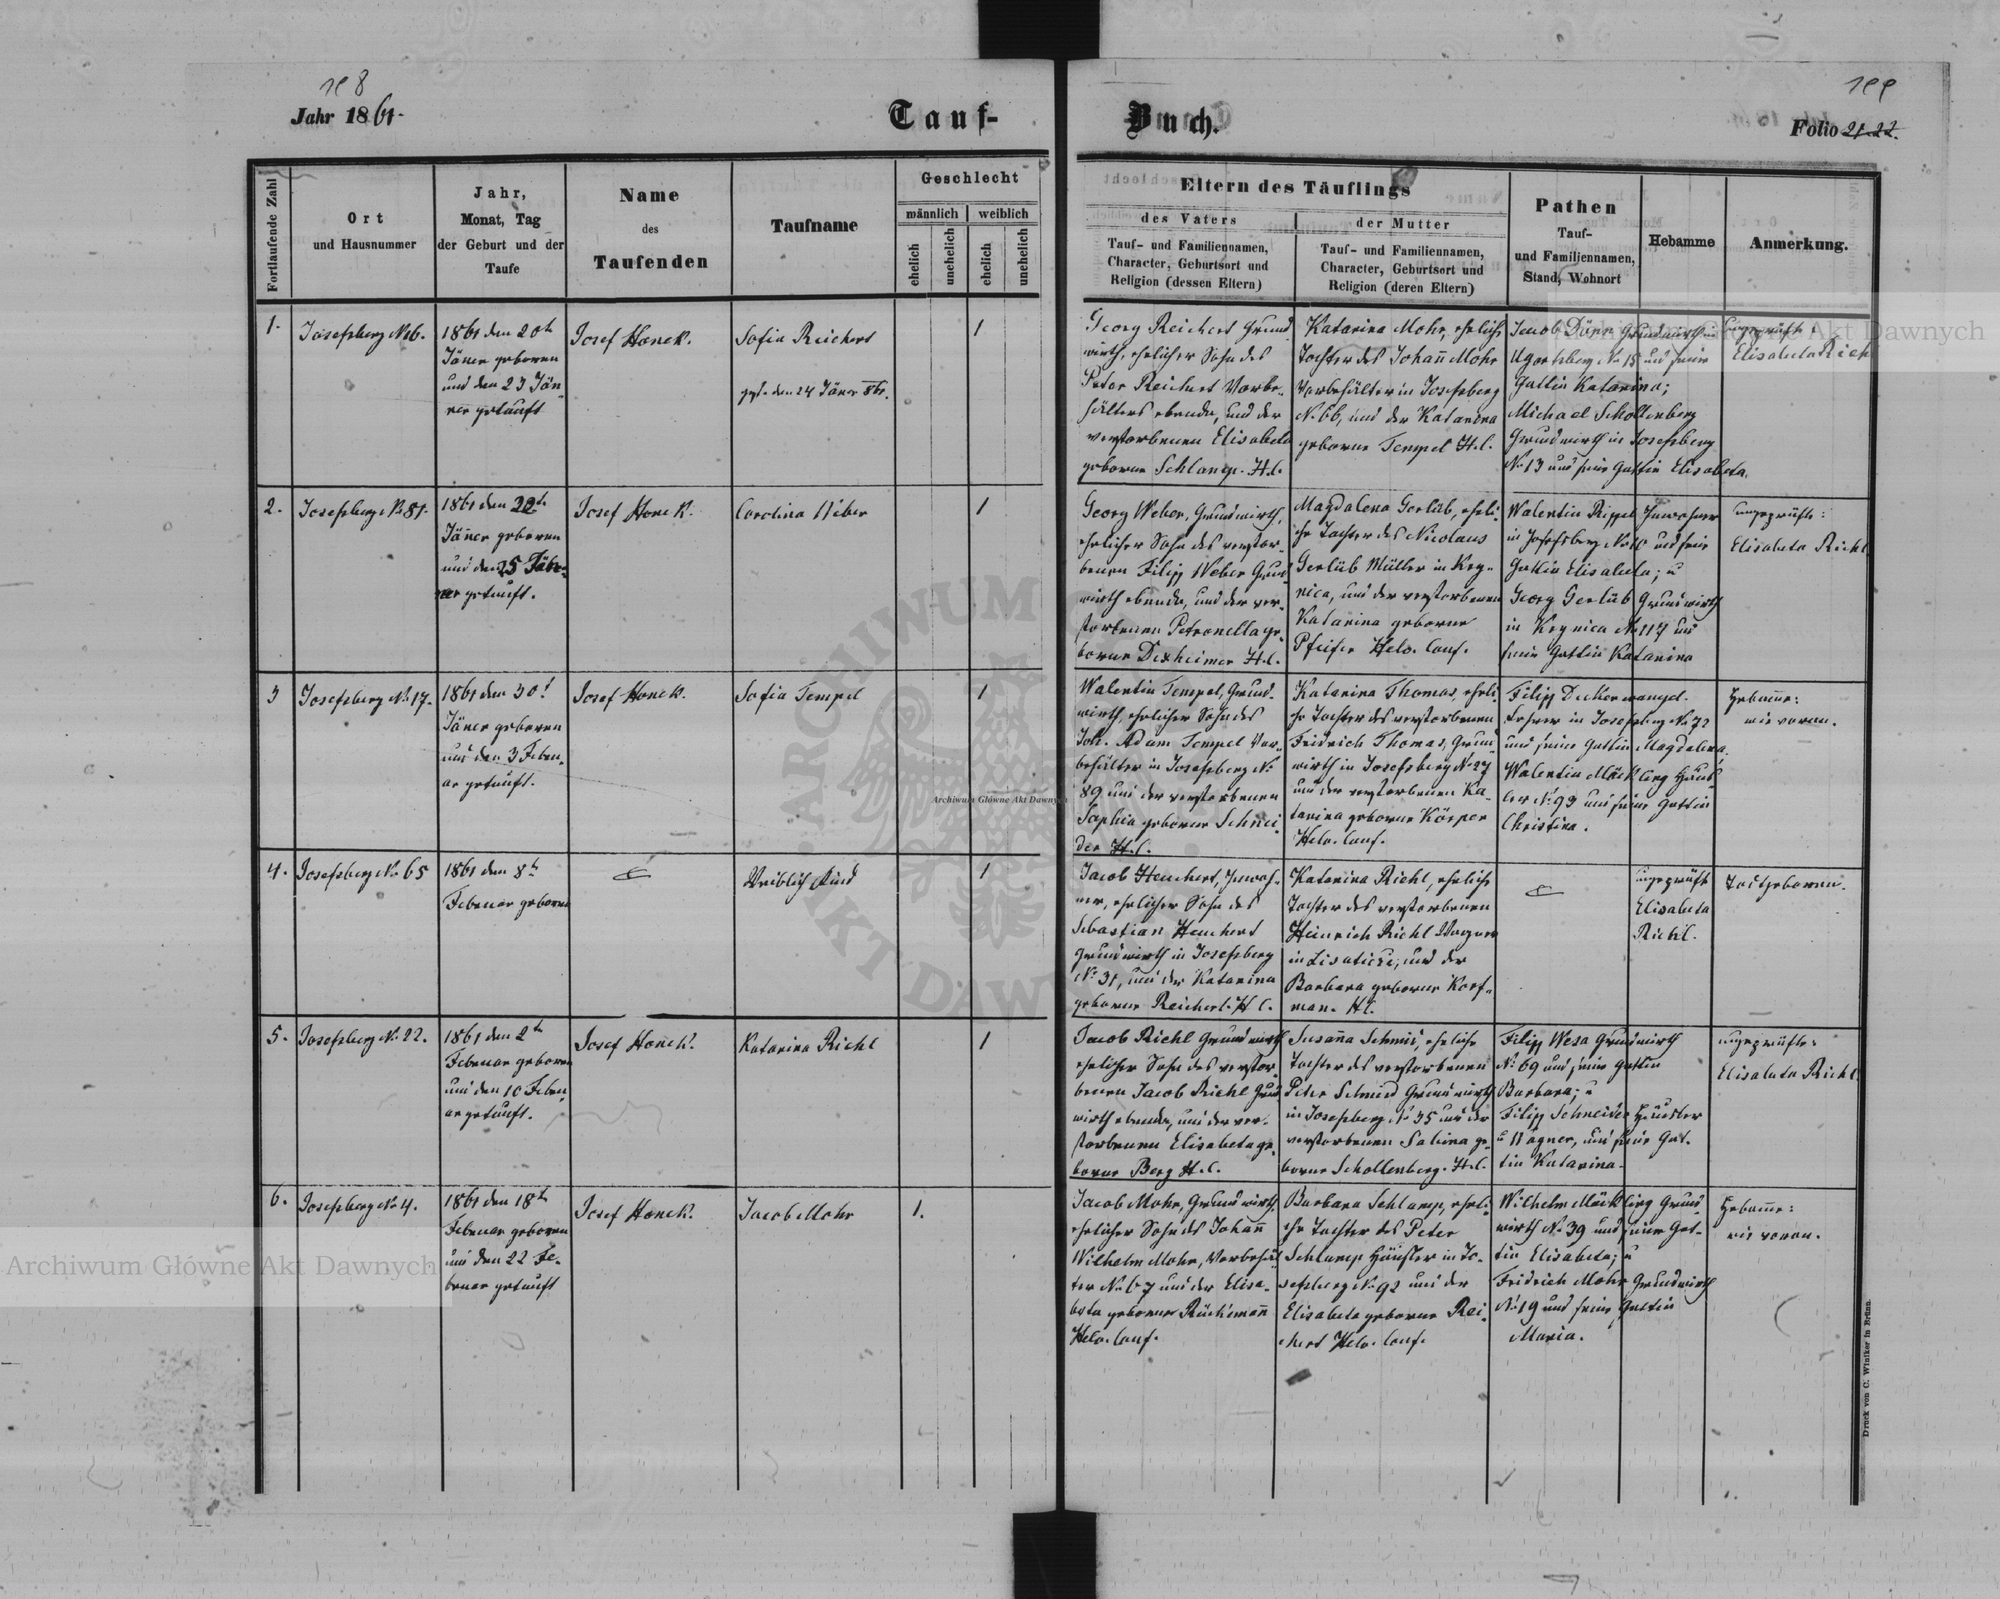 198
Jahr 1861.
Tauf-
Buch.
199
Folio 21.22.
Fortlaufende Zahl
Ort
und Hausnummer
Jahr,
Monat, Tag
der Geburt und der
Taufe
Name
des
Taufenden
Taufname
Geschlecht
männlich
weiblich
ehelich
unehelich
ehelich
unehelich
Eltern des Täuflings
des Vaters
Tauf- und Familiennamen,
Character, Geburtsort und
Religion (dessen Eltern)
der Mutter
Tauf- und Familiennamen,
Character, Geburtsort und
Religion (deren Eltern)
Pathen
Tauf-
und Familiennamen,
Stand, Wohnort
Hebamme
Anmerkung.
1.
Josefsberg No 6.
1861 den 20t
Jäner geboren
und den 23 Jän-
ner getauft
Josef Honek.
Sofia Reichert
gest. den 24 Jäner
1
Georg Reichert Grund
wirth, ehelicher Sohn des
Peter Reichert Vorbe-
hälters ebenda, und der
verstorbenen Elisabeta
geborne Schlamp. H.C.
Katarina Mohr, ehelich
Tochter des Johann Mohr
Vorbehälter in Josefsberg
No 66, und der Katarina
geborne Tempel H.C.
Jacob Dörr Grundwirth in
Ugartsberg No 15 und seine
Gattin Katarina;
Michael Schollenberg
Grundwirth in Josefsberg
No 13 und seine Gattin Elisabeta.
ungeprüfte:
Elisabeta Riehl
2.
Josefsberg No 81.
1861 den 20t
Jäner geboren
und den 25 Jän-
ner getauft.
Josef Honek.
Carolina Weber
1
Georg Weber, Grundwirth,
ehelicher Sohn des verstor-
benen Filipp Weber Grund
wirth ebenda, und der ver-
storbenen Petronella ge-
borne Dexheimer H.C.
Magdalena Gerlüb, eheli-
che Tochter des Nicolaus
Gerlüb Müller in Key-
nica, und der verstorbenen
Katarina geborne
Pfeifer Helv. Conf.
Walentin Rippel Inwohner
in Josefsberg No 10 und seine
Gattin Elisabeta; u
Georg Gerlüb Grundwirth
in Keynica No 117 und
seine Gattin Katarina
ungeprüfte:
Elisabeta Riehl
3
Josefsberg No 17.
1861 den 30t
Jäner geboren
und den 3 Febru-
ar getauft.
Josef Honek.
Sofia Tempel
1
Walentin Tempel, Grund-
wirth, ehelicher Sohn des
Joh. Adam Tempel Vor-
behälter in Josefsberg No
89 und der verstorbenen
Sophia geborne Schnei-
der H.C.
Katarina Thomas, eheli-
che Tochter des verstorbenen
Fridrich Thomas, Grund
wirth in Josefsberg No 27
und der verstorbenen Ka-
tarina geborne Körper
Helv. Conf.
Filipp Decker evangel.
Lehrer in Josefsberg No 72
und seine Gattin Magdalena,
Walentin Mäckling Häus-
ler No 93 und seine Gattin
Christina.
Hebame:
wie voran.
4.
Josefsberg No 65
1861 den 8t
Februar geboren
Weiblich Kind
1
Jacob Heuchert, Inwoh-
ner, ehelicher Sohn des
Sebastian Heuchert
Grundwirth in Josefsberg
No 31, und der Katarina
geborne Reichert. H.C.
Katarina Riehl, ehelich
Tochter des verstorbenen
Heinrich Riehl Wagner
in Lisatice, und der
Barbara geborne Korf-
man. H.C.
ungeprüft
Elisabeta
Riehl.
Todtgeboren.
5.
Josefsberg No 22.
1861 den 2t
Februar geboren
und den 10 Febru-
ar getauft.
Josef Honek.
Katarina Riehl
1
Jacob Riehl Grundwirth
ehelicher Sohn des verstor-
benen Jacob Riehl Grund
wirth ebenda, und der ver-
storbenen Elisabeta ge-
borne Berg H.C.
Susana Schmid, eheliche
Tochter des verstorbenen
Peter Schmid Grundwirth
in Josefsberg No 35 und der
verstorbenen Sabina ge-
borne Schollenberg. H.C.
Filipp Wesa Grundwirth
No 69 und seine Gattin
Barbara; u
Filipp Schneider Häusler
u Wagner, und seine Gat-
tin Katarina.
ungeprüfte:
Elisabeta Riehl
6.
Josefsberg No 4.
1861 den 18t
Februar geboren
und den 22 Fe-
bruar getauft
Josef Honek.
Jacob Mohr
1.
Jacob Mohr, Grundwirth,
ehelicher Sohn des Johann
Wilhelm Mohr, Vorbehäl-
ter No 67 und der Elisa-
beta geborne
Helv. Conf.
Barbara Schlamp, eheli-
che Tochter des Peter
Schlamp Häusler in Jo-
sefsberg No 92 und der
Elisabeta geborne Rei-
chert Helv. Conf.
Wilhelm Mäckling Grund
wirth No 39 und seine Gat-
tin Elisabeta; u
Fridrich Mohr Grundwirth
No 19 und seine Gattin
Maria.
Hebame:
wie voran.
Druck von C. Winiker in Brünn.
Archiwum Główne Akt Dawnych
Archiwum Główne Akt Dawnych
Archiwum Główne Akt Dawnych
ARCHIWUM
AKT DAWN